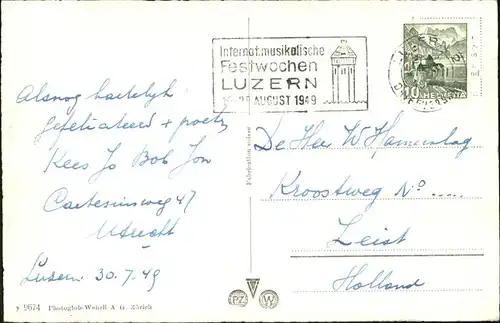 Internat.musikalische
Festwochen
LUZERN
AUGUST 1949
LUZERN
10 HELVETIA
Alsnog hartelijk
gefeliciteerd + poetry
Kees Jo Bob Jon
Cartesiusweg 47
Utrecht
Luzern 30.7.49
De Heer W Hamerslag
Kroostweg No .....
Zeist
Holland
Fabrication suisse
9674 Photoglob-Wehrli A G. Zürich
PZ W